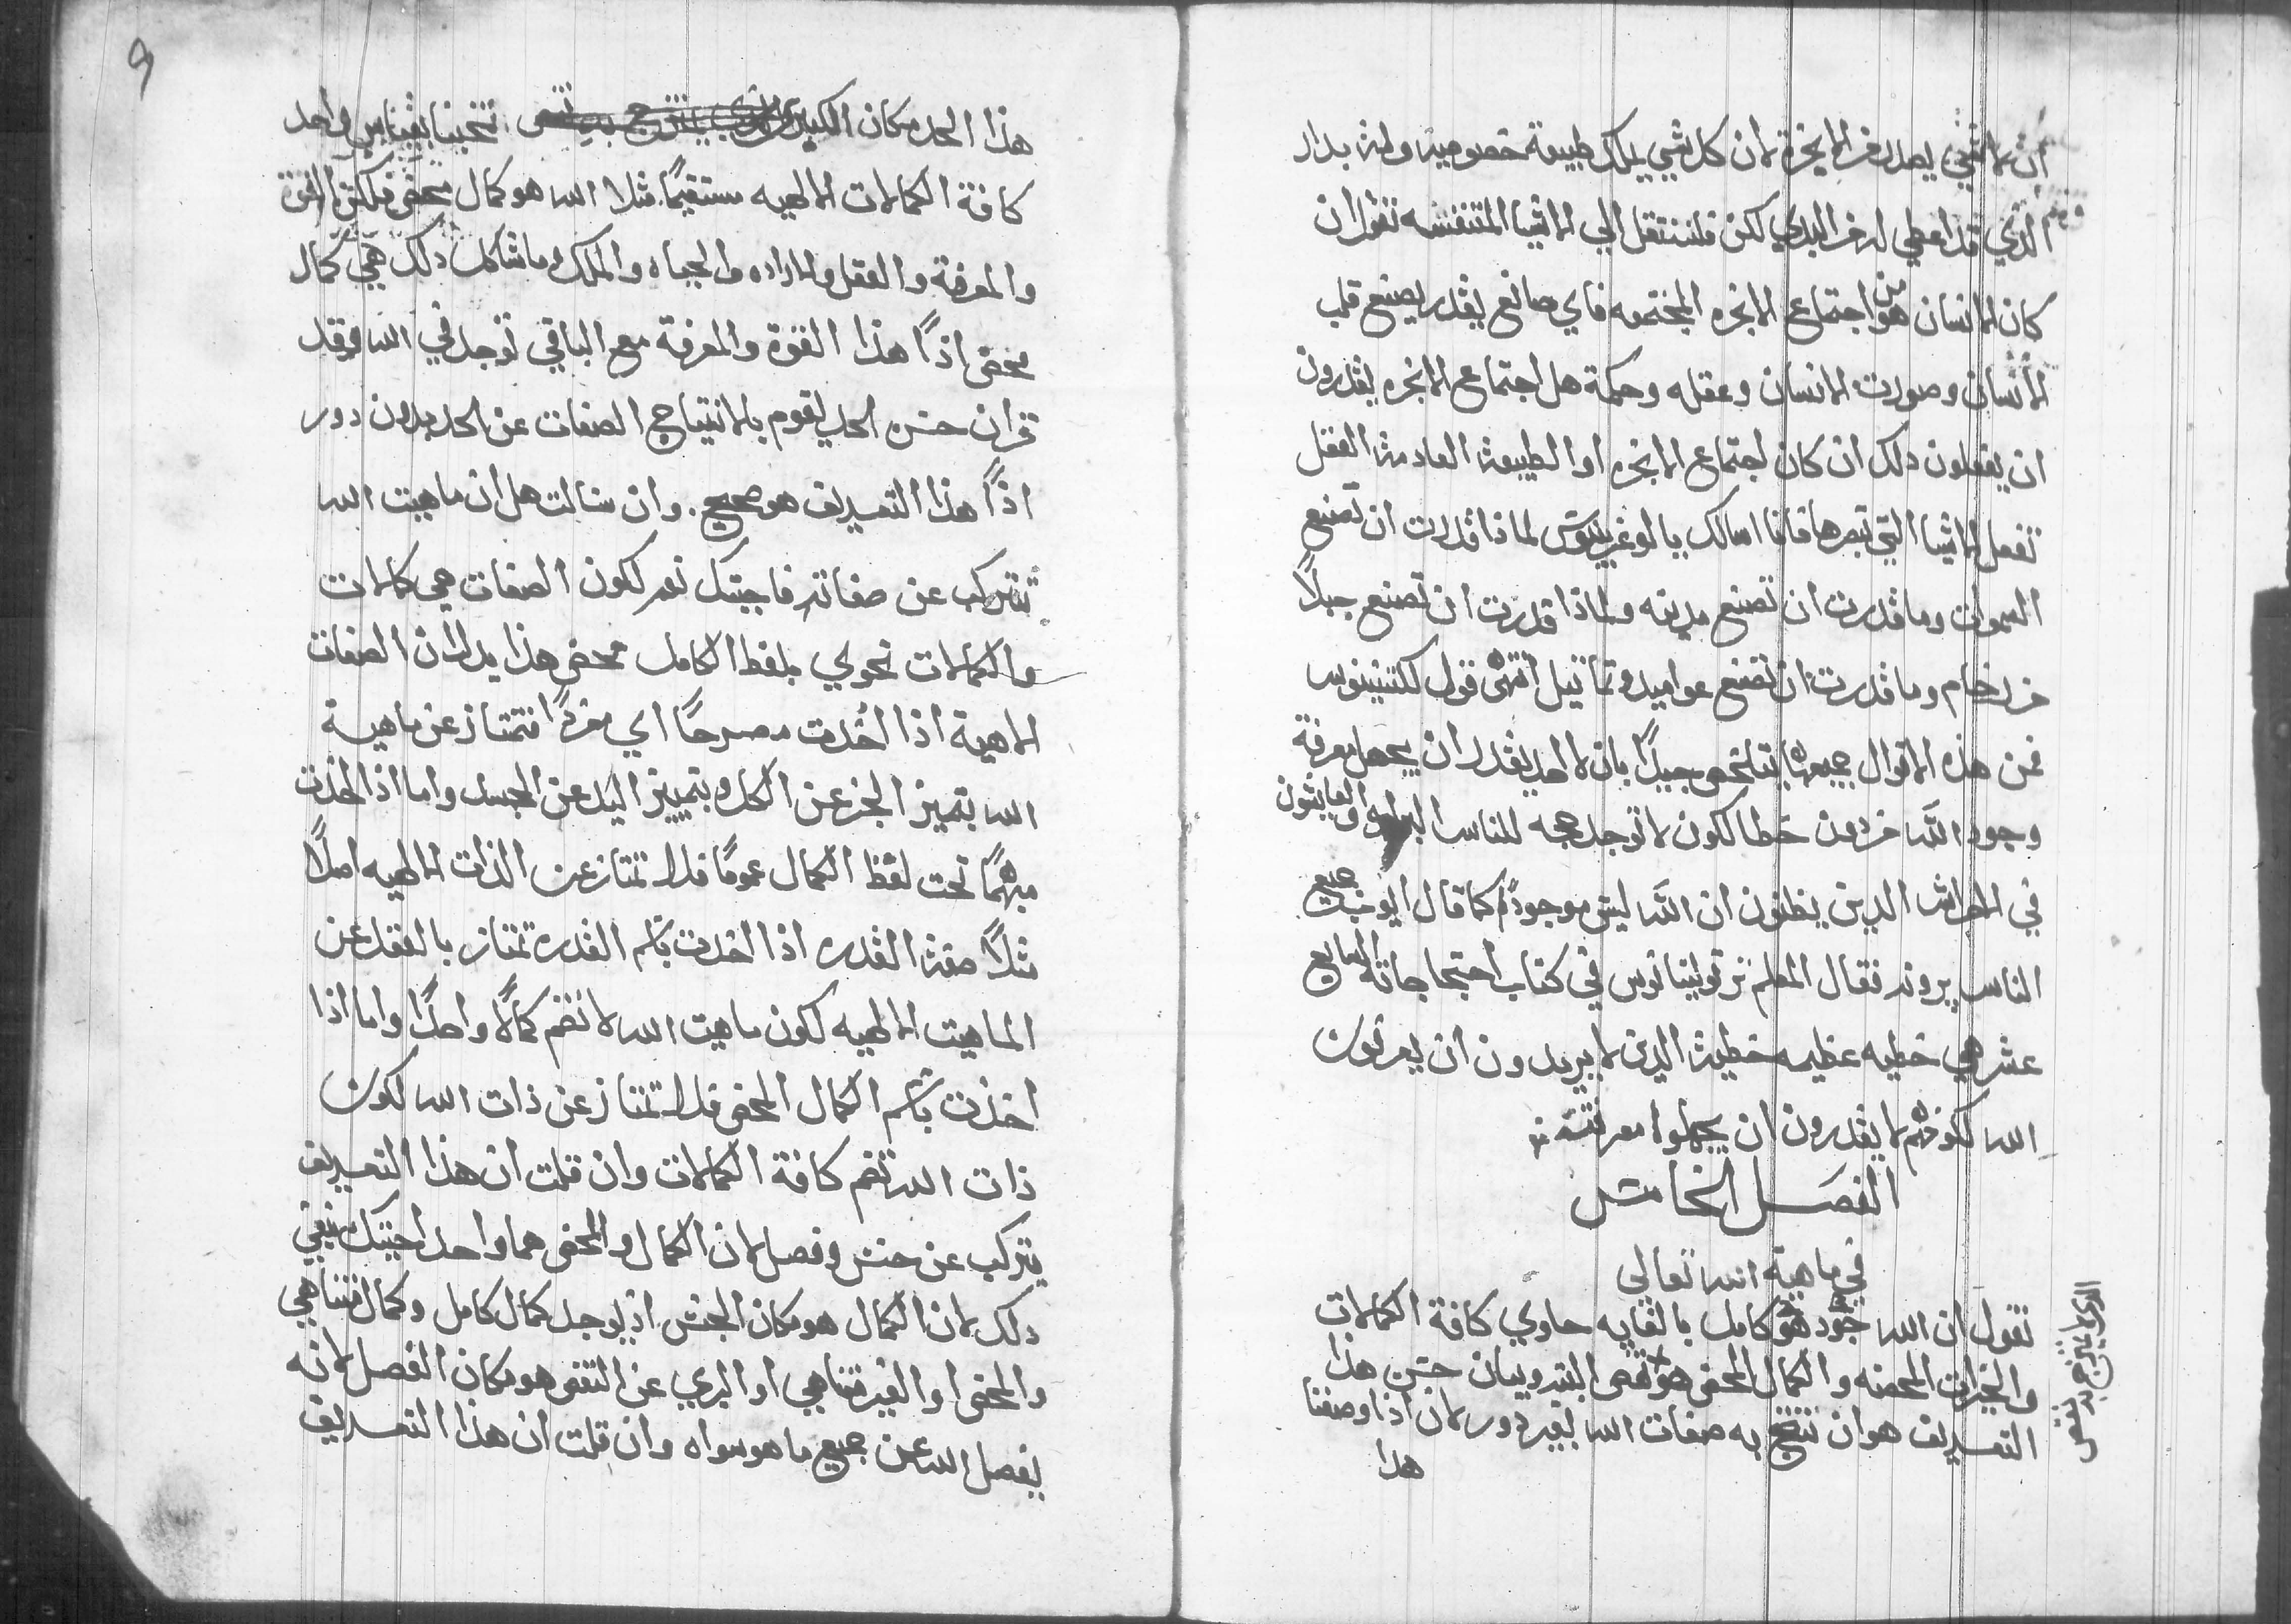 ان لا شي يصدر من الابخرة لان كل شي يملك طبيعة خصوصية وانه بدار
الذي قد اعطي له من البدي لكن فلننتقل الي الاشيا المتنفسه نقول ان
كان الانسان هو من اجتماع الابخره المجتمعه فاي صانع يقدر يصنع قلب
الانسان وصورت الانسان وعقله وحكمة هل اجتماع الابخره يقدرون
ان يفعلون دلك ان كان اجتماع الابخره او الطبيعة العادمة العقل
تفعل الاشيا التي تبصرها فانا اسالك يا لماذا قدرت ان تصنع
السموات وما قدرت ان تصنع مدينه ولماذا قدرت ان تصنع جبلاً
من رخام وما قدرت ان تصنع عواميد وتماتيل انتهى قول لكتنينوس
فمن هذه الاقوال جميعها يتلخص جيداً بان لا احد يقدر ان يجهل معرفة
وجود الله من دون خطا لكون لا توجد حجه للناس البرابره والعايشون
في الاحراش الدين يظنون ان الله ليس موجوداً كما قال ايوب جميع
الناس يروند فقال المعلم ترتوليانوس في كتاب احتجاجاته السابع
عشر هي خطيه عظيمه خطية الدين لا يريدون ان يعرفون
الله لكونهم لا يقدرون ان يجهلوا معرفته
الفصل الخامس
في ماهية الله تعالى
نقول ان الله جود هو كامل بالغايه حاوي كافة الكمالات
والخيرات المحضه والكمال المحض هو وبيان حسن هذا
التعريف هو ان تنتج به صفات الله بغير دور لان اذا وصفنا
هذا
الدي لا يمتزج به نقص
هذا الحد مكان الكبير نتجنا بقياس واحد
كافة الكمالات الالهيه مستقيماً مثلا الله هو كمال محض فلكن القوة
والمعرفة والعقل والاراده والحياه والملك وما شاكل دلك هي كمال
محض اذاً هذا القوة والمعرفة مع الباقي توجد في الله وقد
قران حسن الحد يقوم بالانتياج الصفات عن الحد بدون دور
اذاً هذا التعريف هو صحيح. وان سالت هل ان ماهيت الله
تتركب عن صفاته فاجبتك نعم لكون الصفات هي كمالات
والكمالات تحوي بلفظ الكامل محض هذا يدل ان الصفات
الاهية اذا اخدت مصرحاً اي مفرداً فتمتاز عن ماهية
الله بتميز الجز عن الكل وبتمييز اليد عن الجسد واما اذا اخدت
مبهماً تحت لفظ الكمال عموماً فلا تمتاز عن الذات الالهيه اصلاً
مثلاً صفة القدره اذا اخدت باسم القدرة تمتاز بالفعل عن
الماهيت الالهيه لكون ماهيت الله لا تضم كمالاً واحداً واما اذا
اخذت باسم الكمال المحض فلا تمتاز عن ذات الله لكون
ذات الله تضم كافة الكمالات وان قلت ان هذا التعريف
يتركب عن جنس وفصل لان الكمال والمحض هما واحد اجبتك نفي
دلك لان الكمال هو مكان الجنس اذ يوجد كمال كامل وكمال متناهي
والمحض او الغير متناهي او البري عن النقص هو مكان الفصل لانه
يفصل الله عن جميع ما هو سواه وان قلت ان هذا التعريف